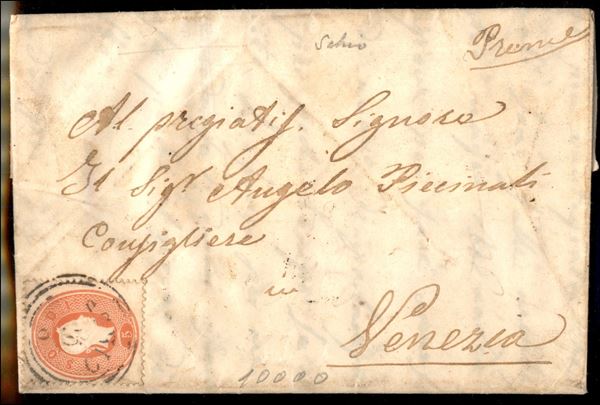 Schio
Al pregiatis. Signore
Il Sigr Angelo Piccinati
Consigliere
in
Venezia
10000